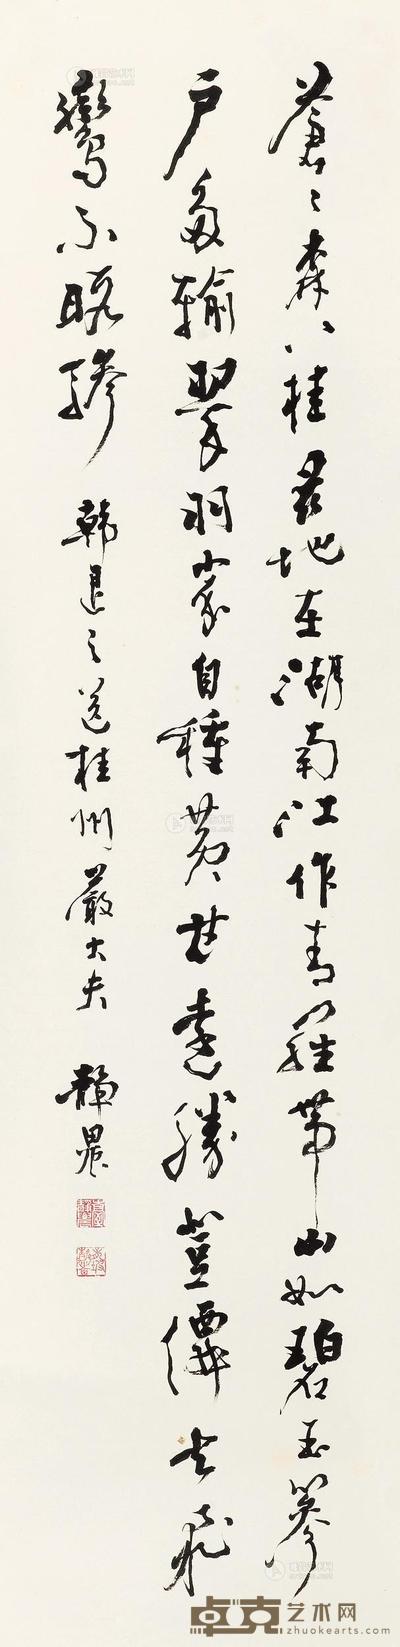 蒼〻森八桂茲地在湖南江作青羅帶山如碧玉篸
戶多輸翠羽家自種黃甘遠勝登僊去飛
鸞不暇驂 韓退之送桂州嚴大夫 靜農
卓克艺术网
zhuokearts.com